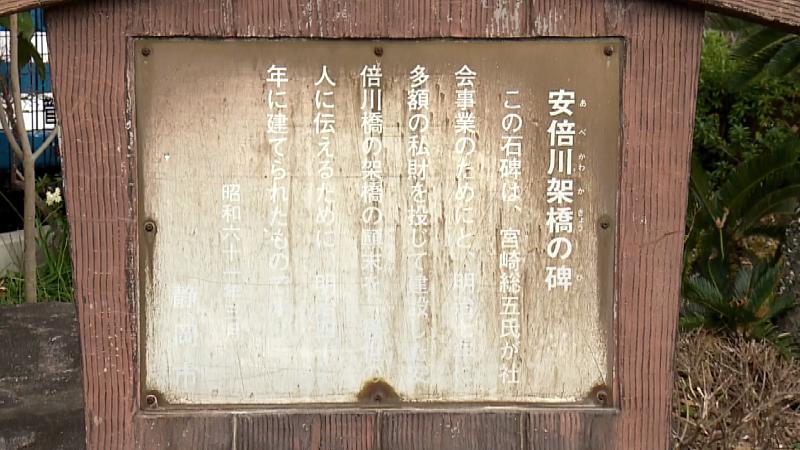 安倍川架橋の碑
あべかわかきょうひ
この石碑は、宮崎総五氏が社
会事業のためにと、明治七年
多額の私財を投じて建設した安
倍川橋の架橋の顛末を
人に伝えるために 明治
年に建てられたもの
昭和六十一年三月
静岡市